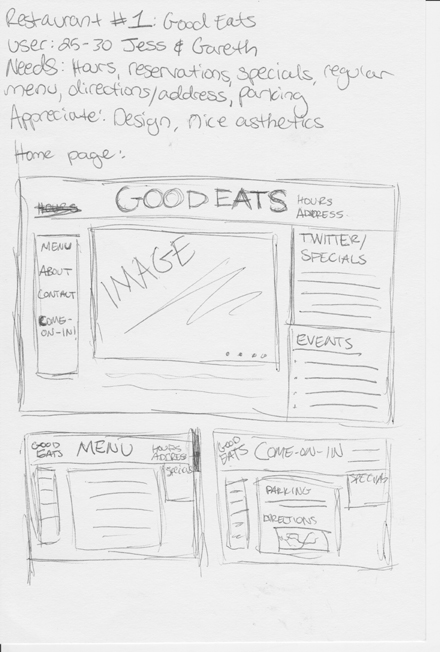 Restaurant #1: Good Eats
User: 25-30 Jess & Gareth
Needs: Hours, reservations, specials, regular
menu, directions/address, parking
Appreciate: Design, nice asthetics
Home page:
HOURS
GOOD EATS
HOURS
ADDRESS
MENU
ABOUT
CONTACT
COME-
-ON-IN!
IMAGE
TWITTER/
SPECIALS
EVENTS
GOOD
EATS
MENU
HOURS
ADDRESS
SPECIALS
GOOD
EATS
COME-ON-IN
SPECIALS
PARKING
DIRECTIONS